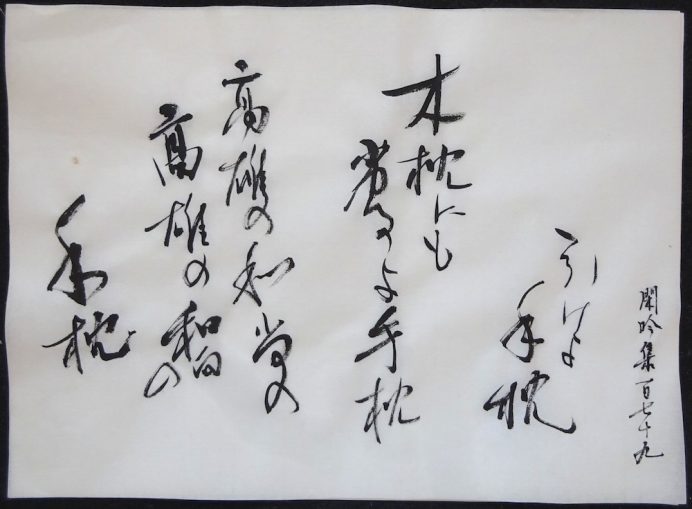 閑吟集百七十九
引けよ
手枕
木枕にも
劣るよ手枕
高雄の和尚の
高雄の和尚の
手枕